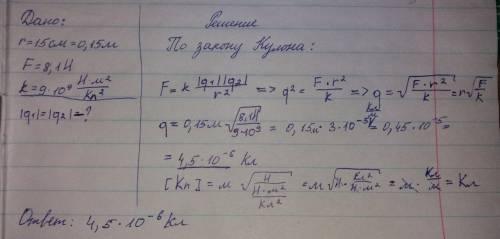 Дано:
r=15см=0,15м
F=8,1Н
k=9·10⁹ Н·м²/Кл²
|q₁|=|q₂|=?
Решение
По закону Кулона:
F = k |q₁||q₂|/r² => q² = F·r²/k => q = √(F·r²/k) = r√(F/k)
q = 0,15м √(8,1Н/9·10⁹) = 0,15м · 3·10⁻⁵ Кл/м = 0,45·10⁻⁵ =
= 4,5·10⁻⁶ Кл
[Кл] = м √(Н/(Н·м²/Кл²)) = м √(Н·Кл²/Н·м²) = м · Кл/м = Кл
Ответ: 4,5·10⁻⁶ Кл